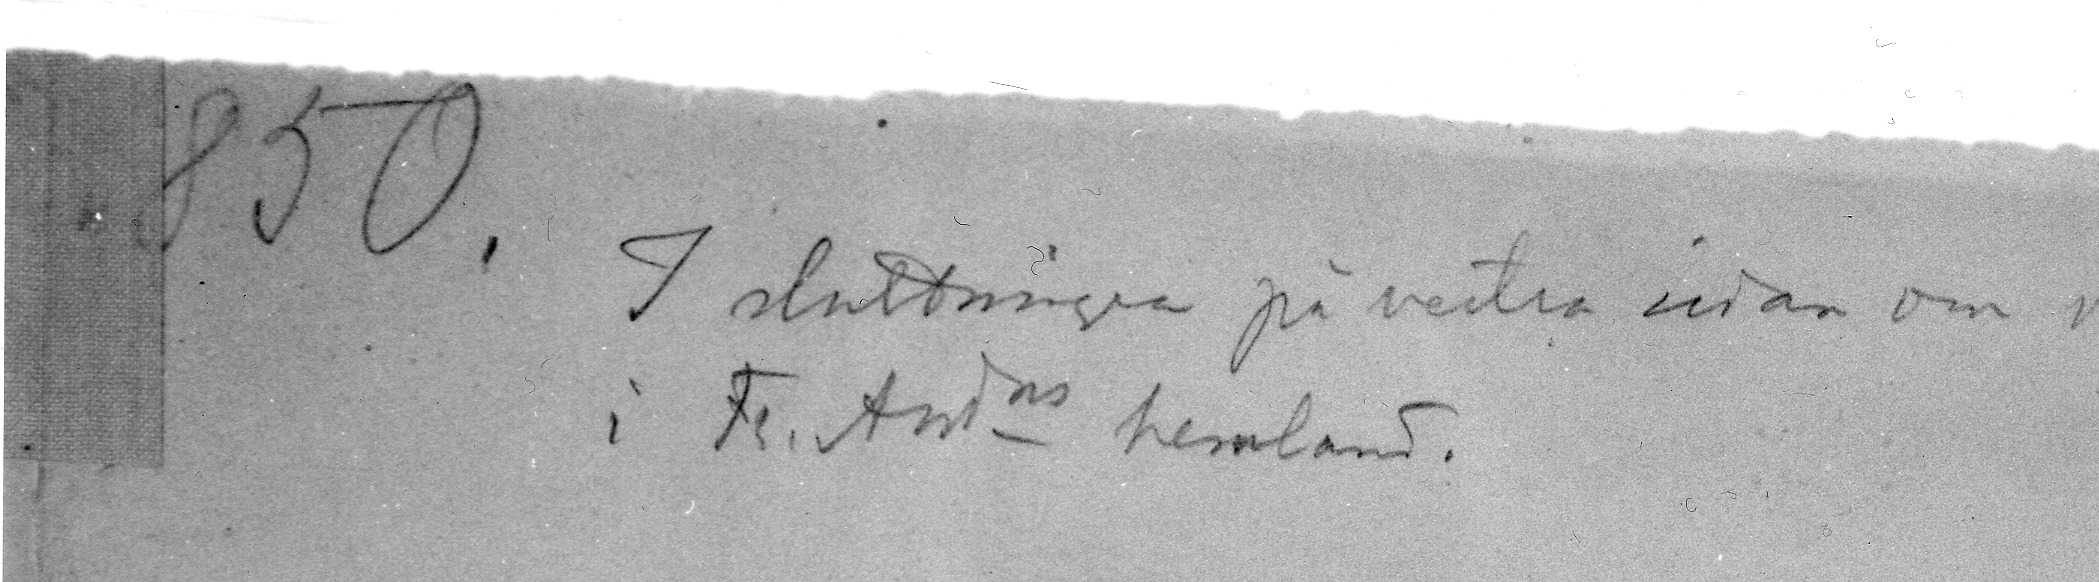 850.
I sluttningen på vestra sidan om
i Fr. And<sup>ns</sup> hemland.